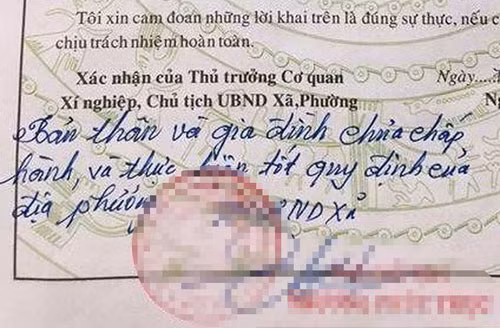 Tôi xin cam đoan những lời khai trên là đúng sự thực, nếu
chịu trách nhiệm hoàn toàn.
Xác nhận của Thủ trưởng Cơ quan Ngày
Xí nghiệp, Chủ tịch UBND Xã,Phường
Bản thân và gia đình chưa chấp
hành, và thực tốt quy định của
địa phương NDXã